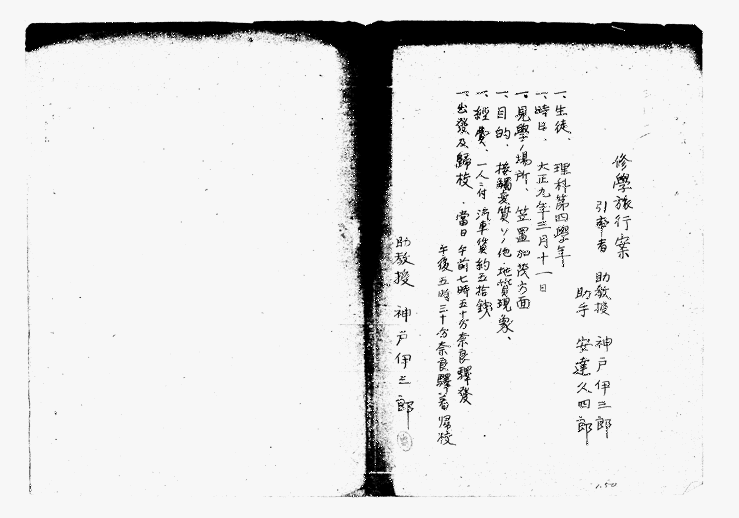 修學旅行案
引率者 助教授 神戸伊三郎
助手 安達久四郎
一、生徒、 理科第四學年
一、時日、 大正九年三月十一日
一、見學ノ場所、 笠置加茂方面
一、目的、 接觸変質ソノ他地質現象、
一、經費、 一人ニ付 汽車賃約五拾錢、
一、出發及歸校、 當日 午前七時五十分奈良驛發
午後五時三十分奈良驛着 歸校
助教授 神戸伊三郎
1.50